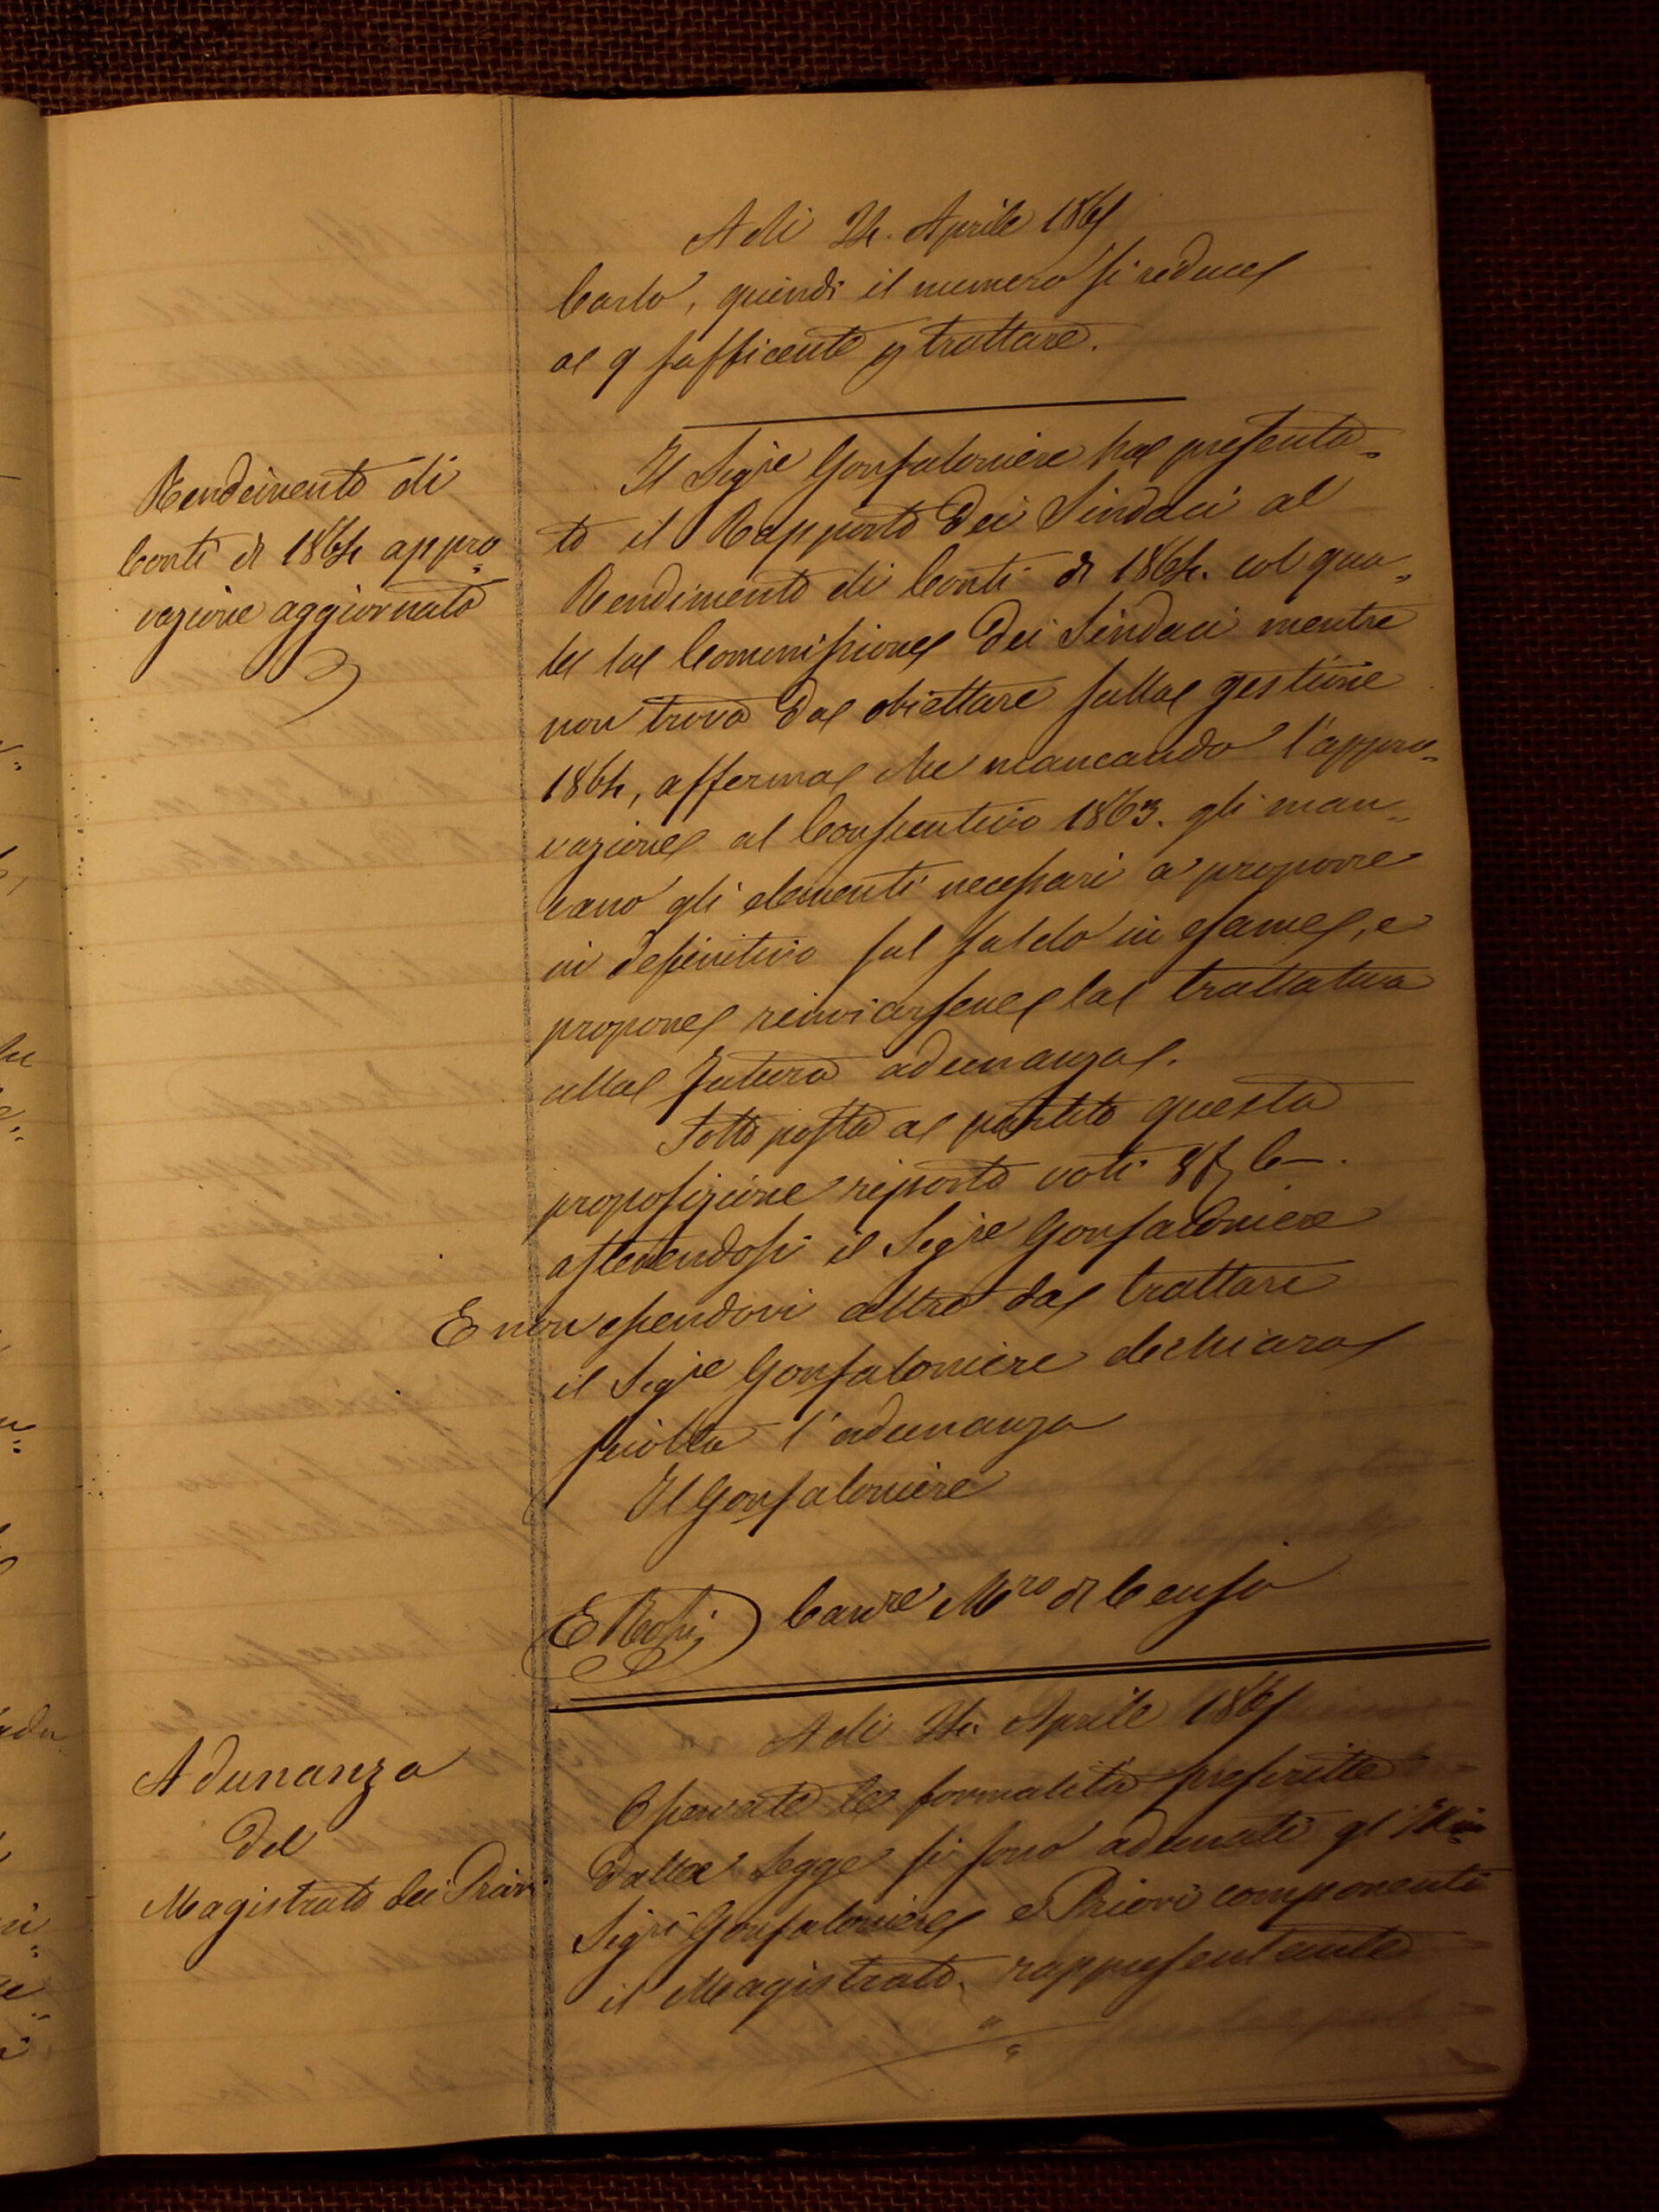 Adì 24. Aprile 1865
Carlo, quindi il numero si riduce
a 9 sufficente p trattare.
Rendimento di
Conti di 1864 appro
vazione aggiornata
Il Sigre Gonfaloniere ha presenta-
to il Rapporto dei Sindaci al
Rendimento di Conti di 1864. col qua-
le la Commissione dei Sindaci mentre
non trova da obiettare sulla gestione
1864, afferma che mancando l'appro-
vazione al Consuntivo 1863. gli man-
cano gli elementi necessari a proporre
in definitivo sul saldo in esame, e
propone rinviarsene la trattativa
alla futura adunanza.
Sotto posta a partito questa
proposizione riportò voti 8 f, C—.
astenendosi il Sigre Gonfaloniere
E non essendovi altro da trattare
il Sigre Gonfaloniere dichiara
sciolta l'adunanza
Il Gonfaloniere
E Rossi Canre Mro di Censo
Adì 24. Aprile 1865
Adunanza
del
Magistrato dei Priori
Osservate le formalità prescritte
dalla Legge si sono adunati gl'Illmi
Sigri Gonfaloniere e Priori componenti
il Magistrato, rappresentante